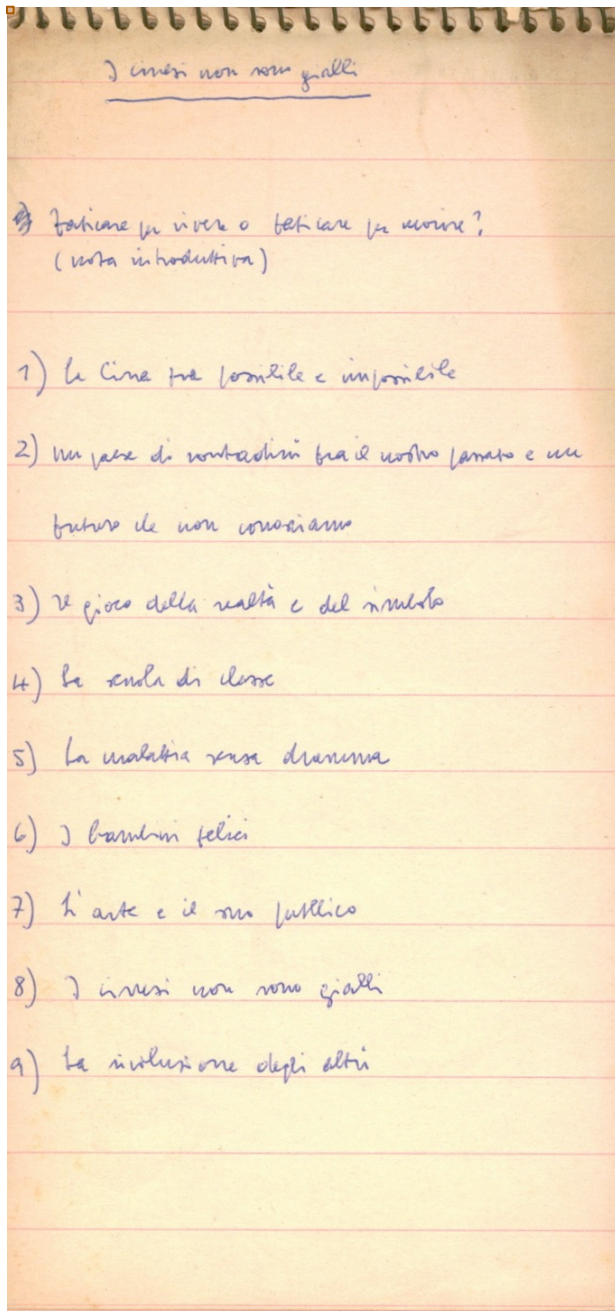 I cinesi non sono gialli
Faticare per vivere o faticare per morire?
(nota introduttiva)
1) La Cina tra possibile e impossibile
2) Un paese di contadini fra il nostro passato e un
futuro che non conosciamo
3) Il gioco della realtà e del simbolo
4) La scuola di classe
5) La malattia senza dramma
6) I bambini felici
7) L'arte e il suo pubblico
8) I cinesi non sono gialli
9) La rivoluzione degli altri